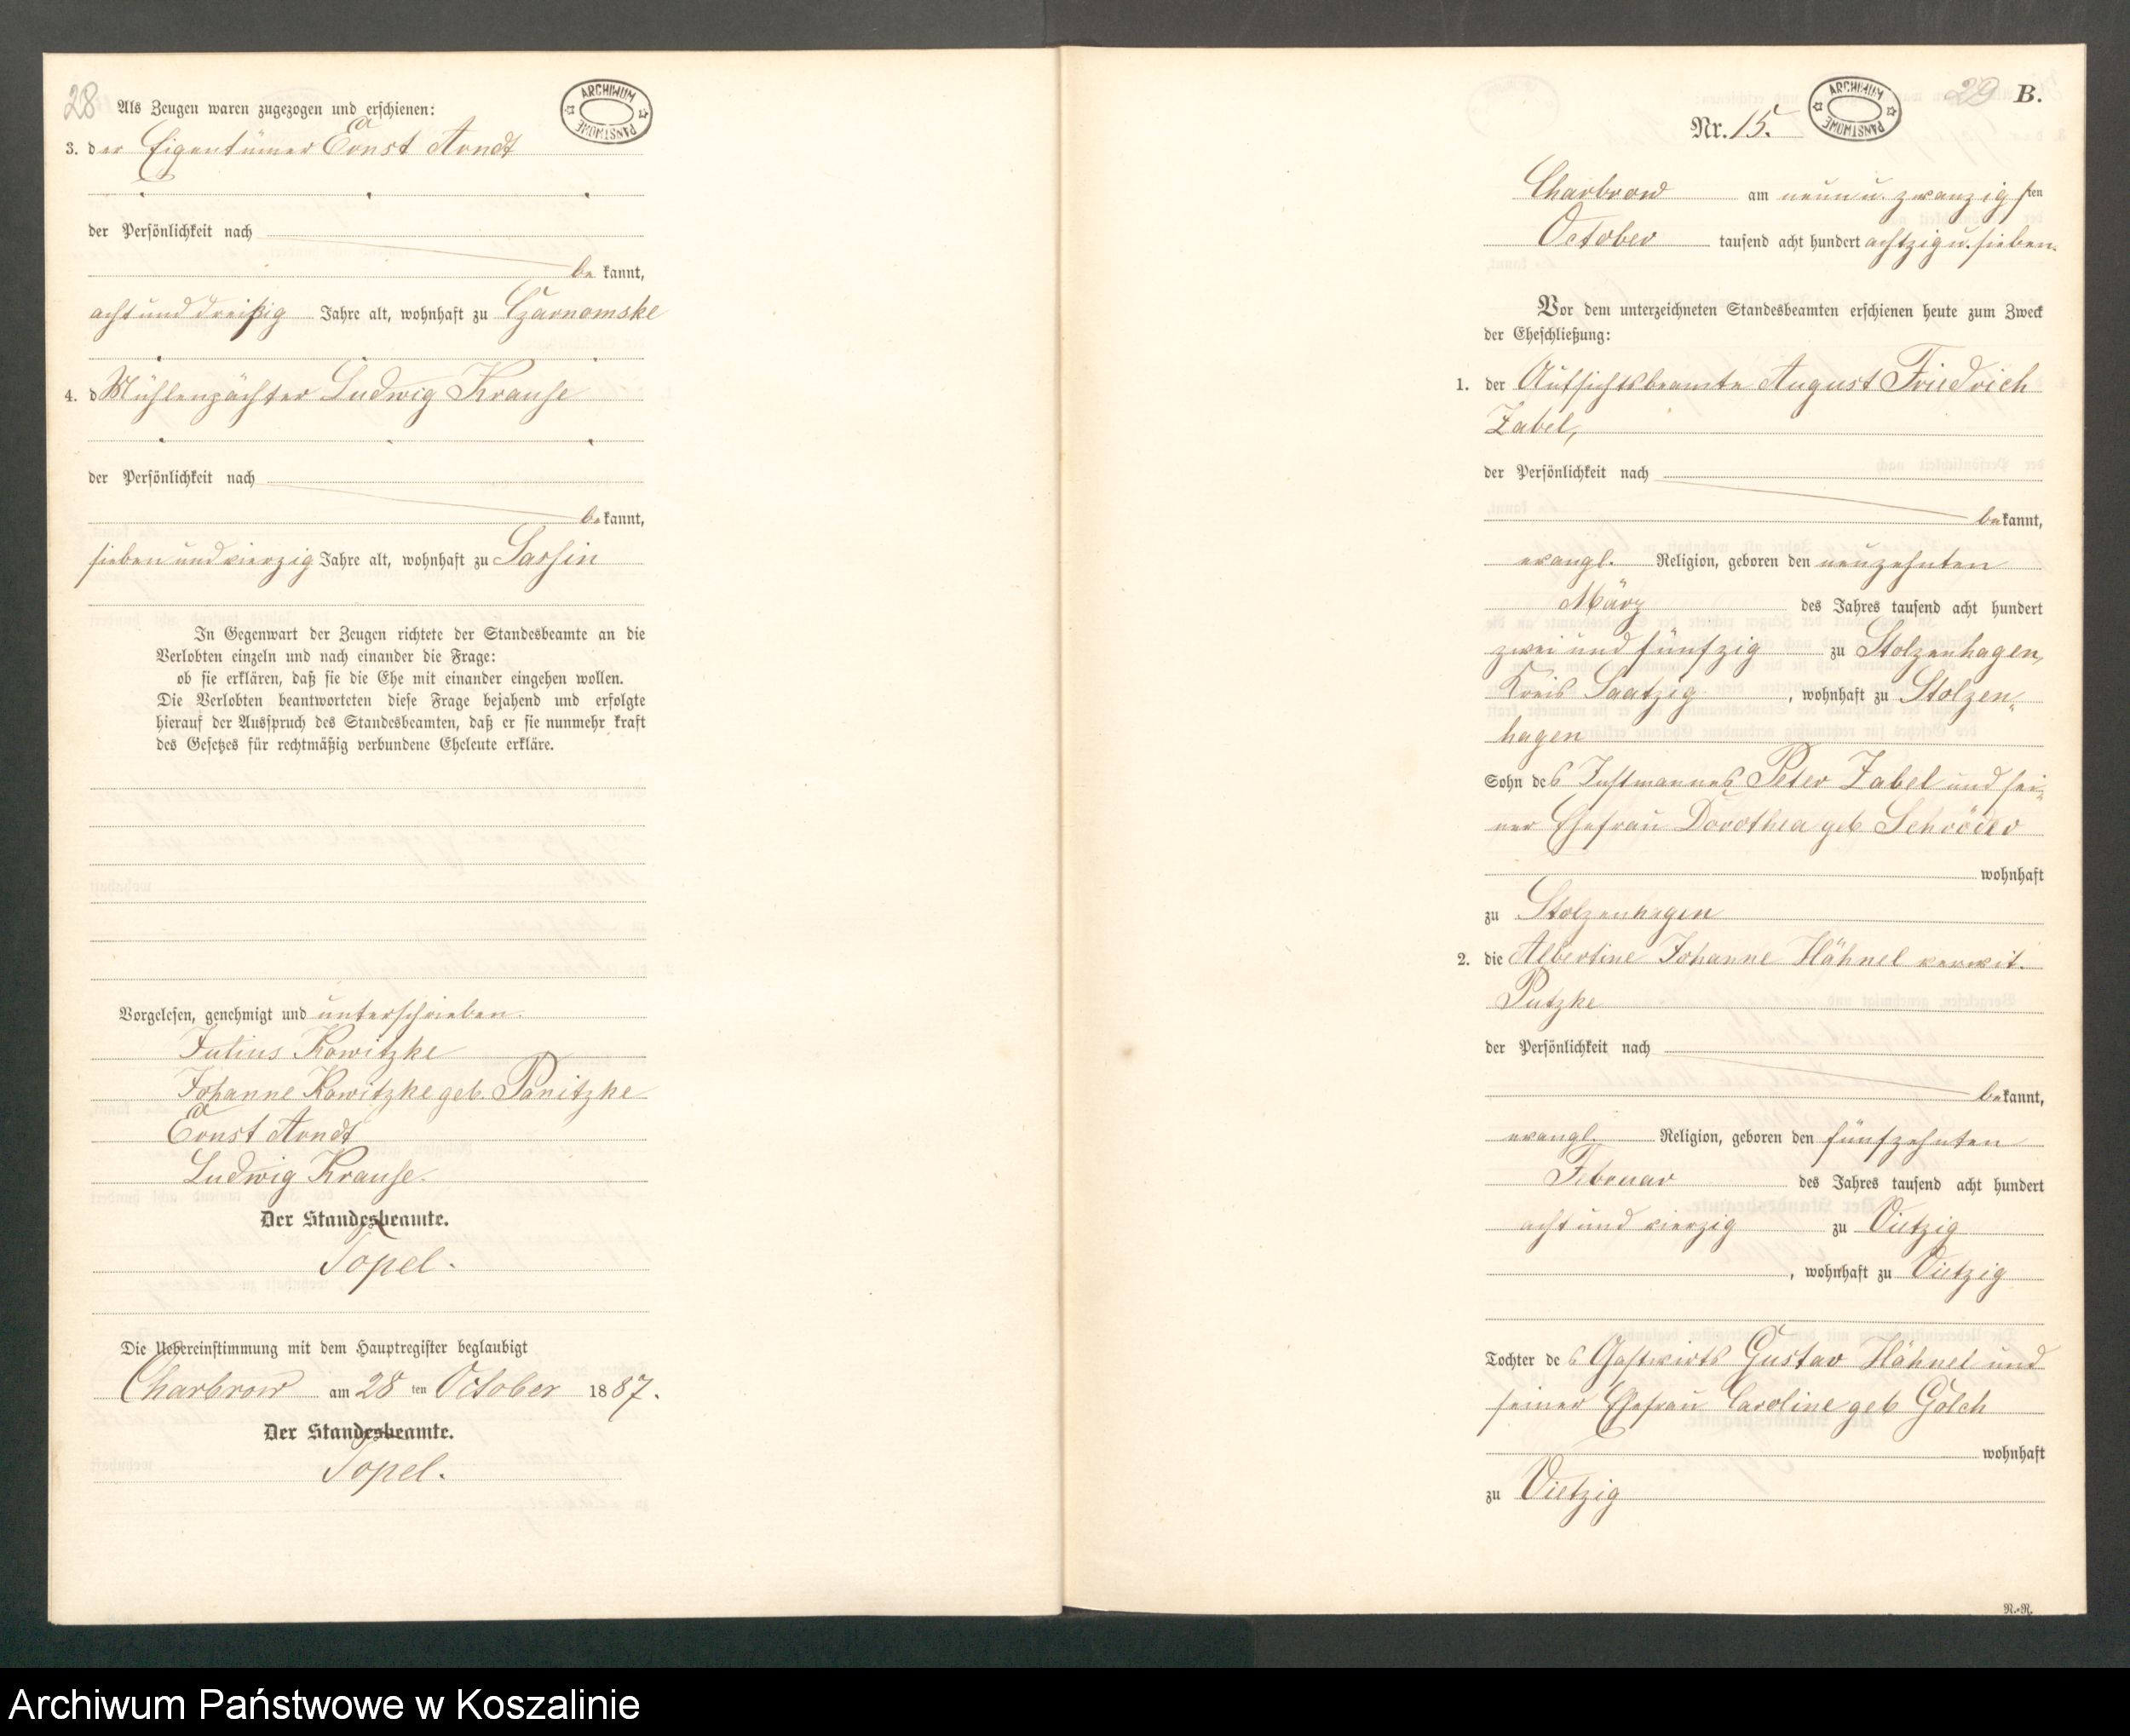 28
Als Zeugen waren zugezogen und erschienen:
ARCHIWUM PAŃSTWOWE
3. der Eigentümer Ernst Arndt
der Persönlichkeit nach
be kannt,
acht und dreißig Jahre alt, wohnhaft zu Czarnomske
4. d Mühlenpächter Ludwig Krause
der Persönlichkeit nach
bekannt,
sieben und vierzig Jahre alt, wohnhaft zu Sassin
In Gegenwart der Zeugen richtete der Standesbeamte an die
Verlobten einzeln und nach einander die Frage:
ob sie erklären, daß sie die Ehe mit einander eingehen wollen.
Die Verlobten beantworteten diese Frage bejahend und erfolgte
hierauf der Ausspruch des Standesbeamten, daß er sie nunmehr kraft
des Gesetzes für rechtmäßig verbundene Eheleute erkläre.
Vorgelesen, genehmigt und unterschrieben.
Julius Kowitzke
Johanne Kowitzke geb. Panitzke
Ernst Arndt
Ludwig Krause.
Der Standesbeamte.
Topel.
Die Uebereinstimmung mit dem Hauptregister beglaubigt
Charbrow am 28 ten October 1887.
Der Standesbeamte.
Topel.
29 B.
ARCHIWUM PAŃSTWOWE
Nr. 15.
Charbrow am neun u. zwanzigsten
October tausend acht hundert achtzig u. sieben.
Vor dem unterzeichneten Standesbeamten erschienen heute zum Zweck
der Eheschließung:
1. der Aufsichtsbeamte August Friedrich
Zabel,
der Persönlichkeit nach
bekannt,
evangl. Religion, geboren den neunzehnten
März des Jahres tausend acht hundert
zwei und fünfzig zu Stolzenhagen,
Kreis Saatzig, wohnhaft zu Stolzen„
hagen
Sohn des Instmannes Peter Zabel und sei„
ner Ehefrau Dorothea geb Schröder
wohnhaft
zu Stolzenhagen
2. die Albertine Johanne Hähnel verwit.
Putzke
der Persönlichkeit nach
bekannt,
evangl. Religion, geboren den fünfzehnten
Februar des Jahres tausend acht hundert
acht und vierzig zu Vietzig
, wohnhaft zu Vietzig
Tochter des Gastwirts Gustav Hähnel und
seiner Ehefrau Caroline geb Golch
wohnhaft
zu Vietzig
R.-R.
Archiwum Państwowe w Koszalinie